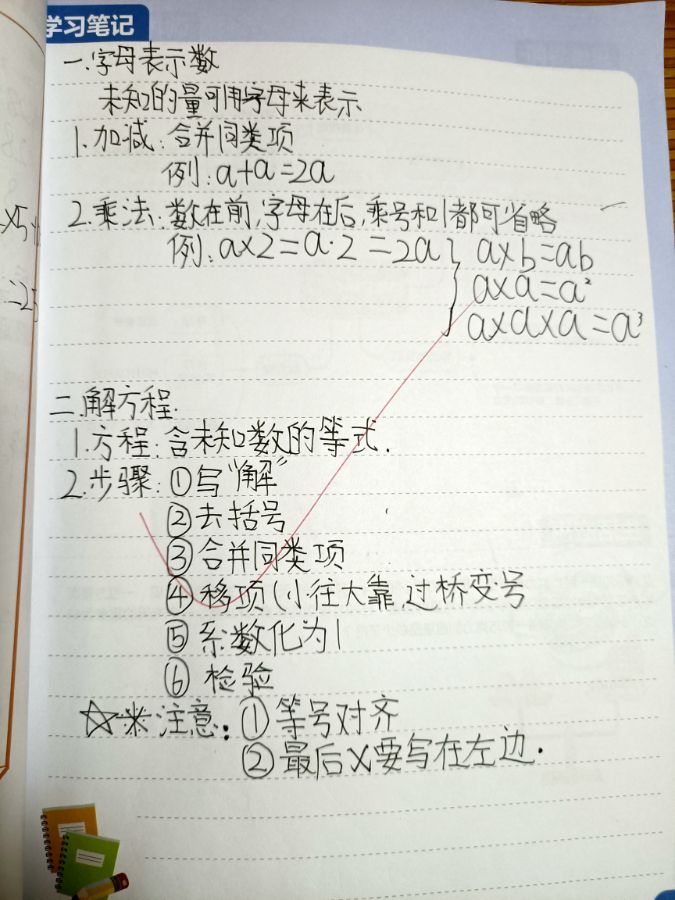 学习笔记
一.字母表示数
未知的量可用字母来表示
1.加减:合并同类项
例:a+a=2a
2.乘法:数在前,字母在后,乘号和1都可省略
例:a×2=a·2=2a } a×b=ab
a×a=a²
a×a×a=a³
二.解方程.
1.方程:含未知数的等式.
2.步骤:①写"解"
②去括号
③合并同类项
④移项(小往大靠,过桥变号
⑤系数化为1
⑥检验
☆※注意:①等号对齐
②最后X要写在左边.